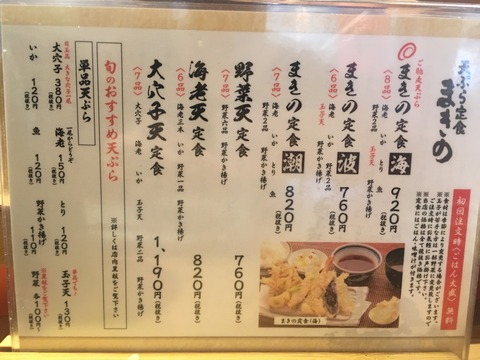 天ぷら定食
まきの
初回注文時〈ごはん大盛〉無料
ご馳走天ぷら
まきの定食 海
920円
(税抜き)
〈8品〉
海老 いか とり 魚
玉子天 野菜2品 野菜かき揚げ
まきの定食 波
760円
(税抜き)
〈7品〉
海老 いか とり
玉子天 野菜2品 野菜かき揚げ
まきの定食 潮
820円
(税抜き)
〈7品〉
海老 いか とり 魚
野菜2品 野菜かき揚げ
野菜天定食
760円
(税抜き)
〈7品〉
野菜六品 野菜かき揚げ
海老天定食
820円
(税抜き)
〈6品〉
海老三本 いか 野菜一品 野菜かき揚げ
大穴子天定食
1,190円
(税抜き)
〈7品〉
大穴子 海老 いか 玉子天 野菜二品 野菜かき揚げ
まきの定食(海)
旬のおすすめ天ぷら
※詳しくは店内黒板をご覧下さい
単品天ぷら
海老 150円(税抜き)
とり 120円(税抜き)
玉子天 130円(税抜き)
大穴子 380円(税抜き)
魚 120円(税抜き)
野菜かき揚げ 110円(税抜き)
いか 120円(税抜き)
野菜 各100円(税抜き)